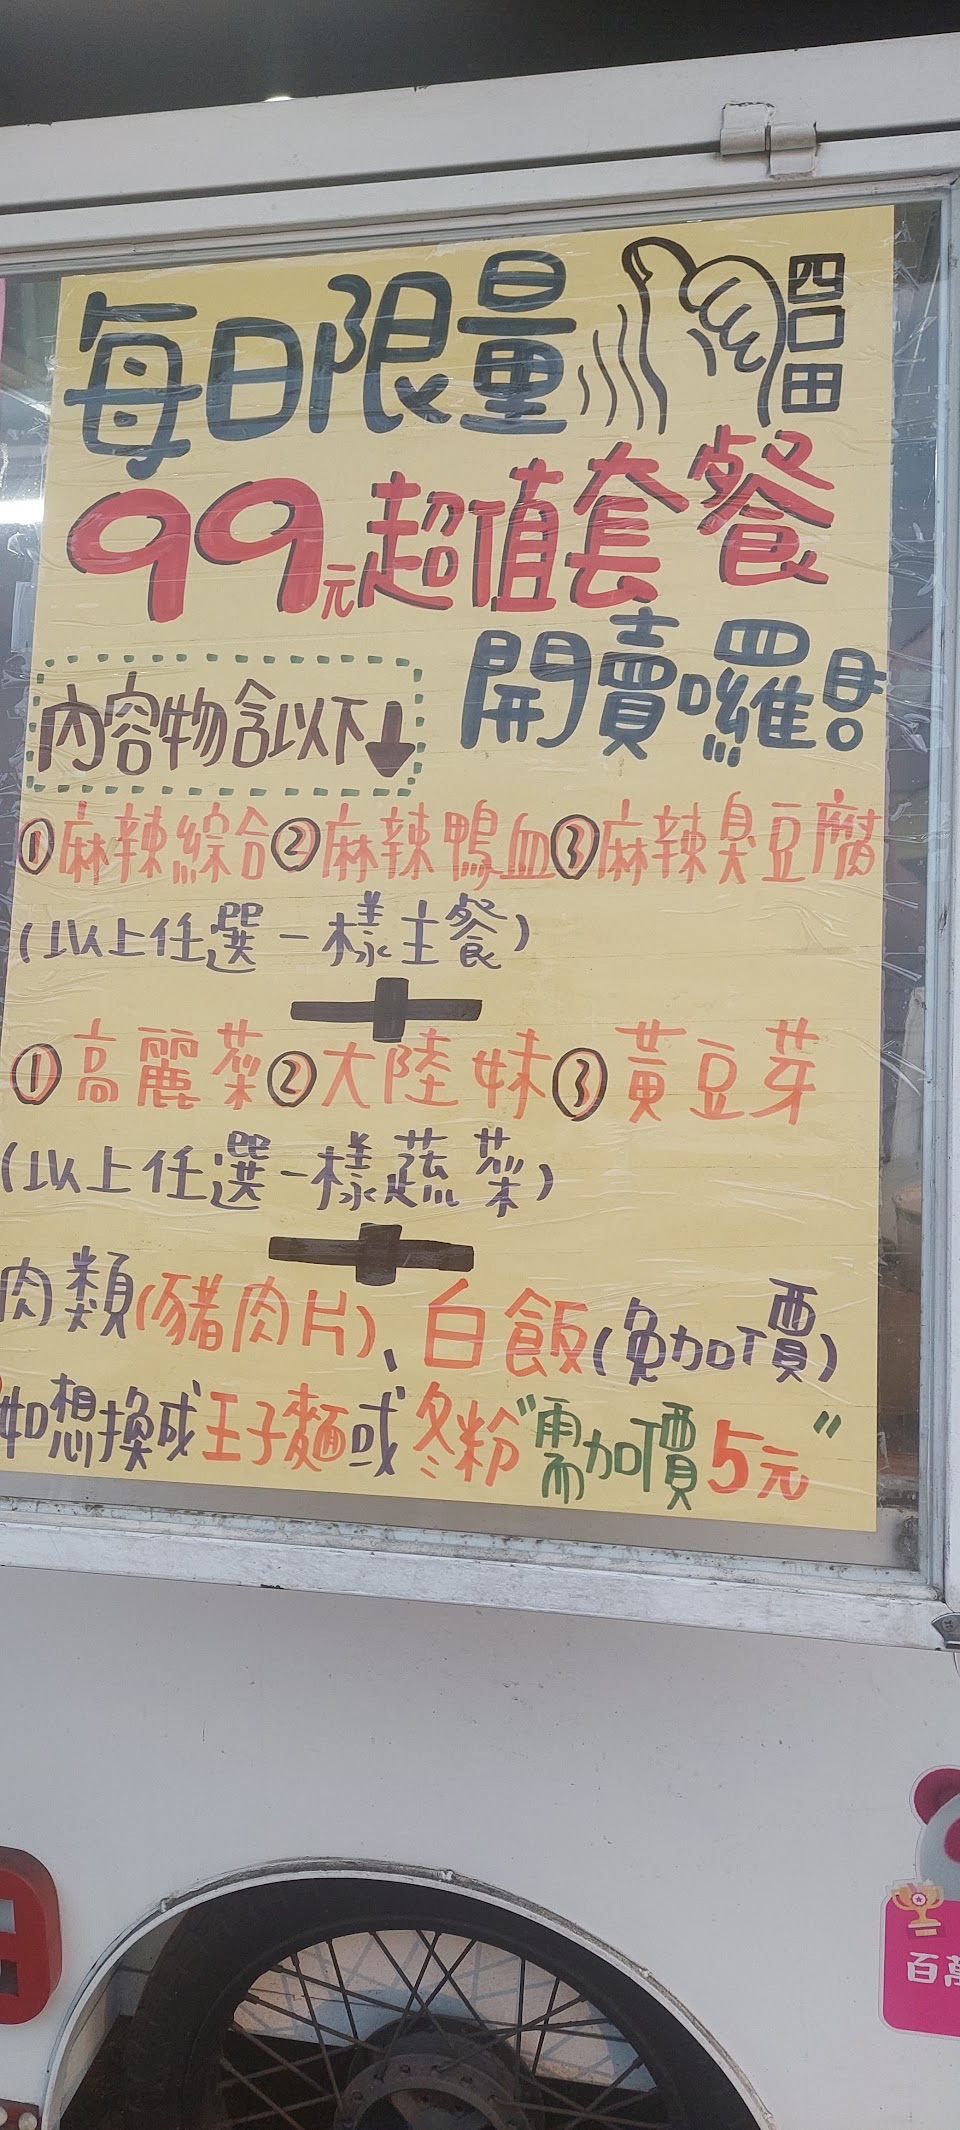 每日限量
四口田
99元超值套餐
開賣囉!
內容物含以下↓
①麻辣綜合②麻辣鴨血③麻辣臭豆腐
(以上任選一樣主餐)
+
①高麗菜②大陸妹③黃豆芽
(以上任選一樣蔬菜)
+
肉類(豬肉片)、白飯(免加價)
如想換成王子麵或冬粉"需加價5元"
百萬